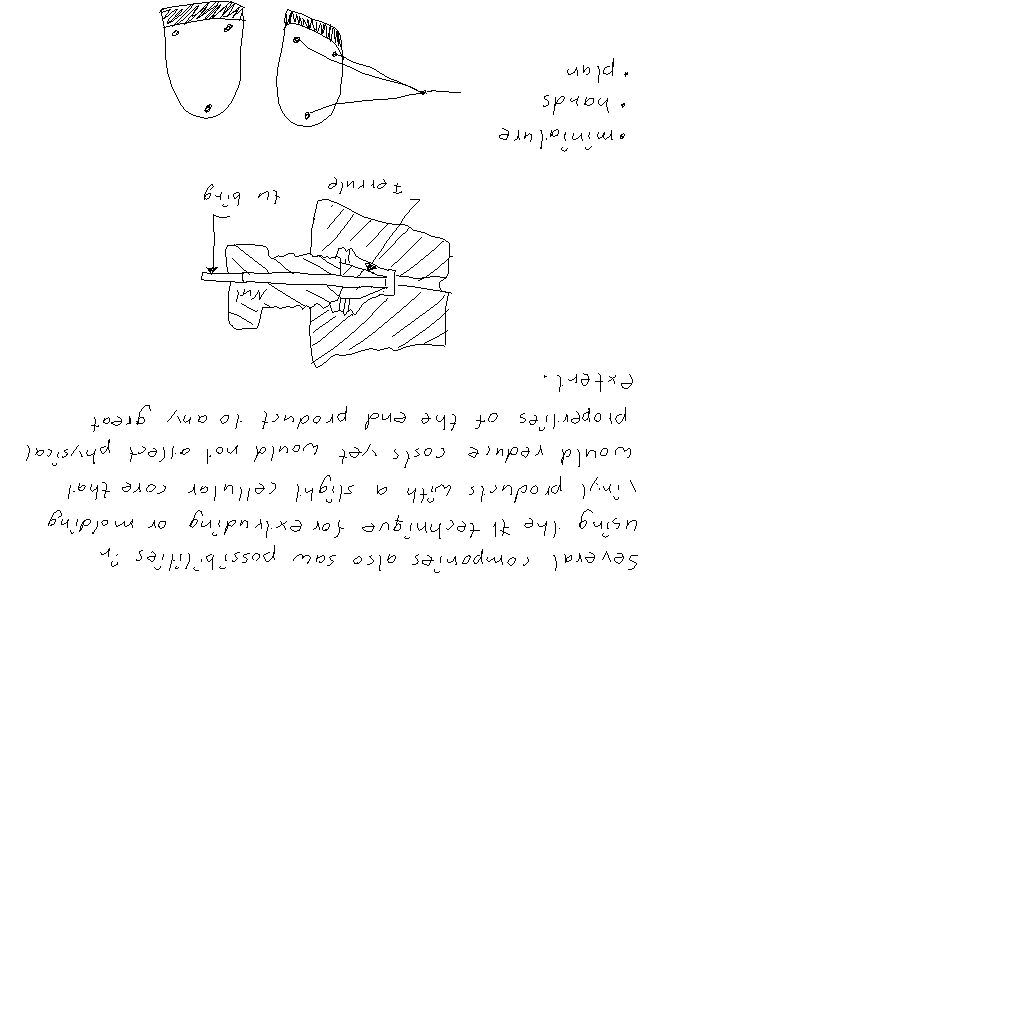 Several companies also saw possibilities in
using the TI technique for extruding or molding
vinyl products with a slight cellular core that
would reduce costs yet would not affect physical
properties of the end product to any great
extent.
Nut
tubing
Ferrule
• miniature
• hands
• plan